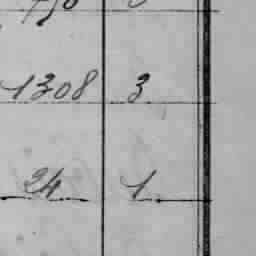 1308 3
24 1